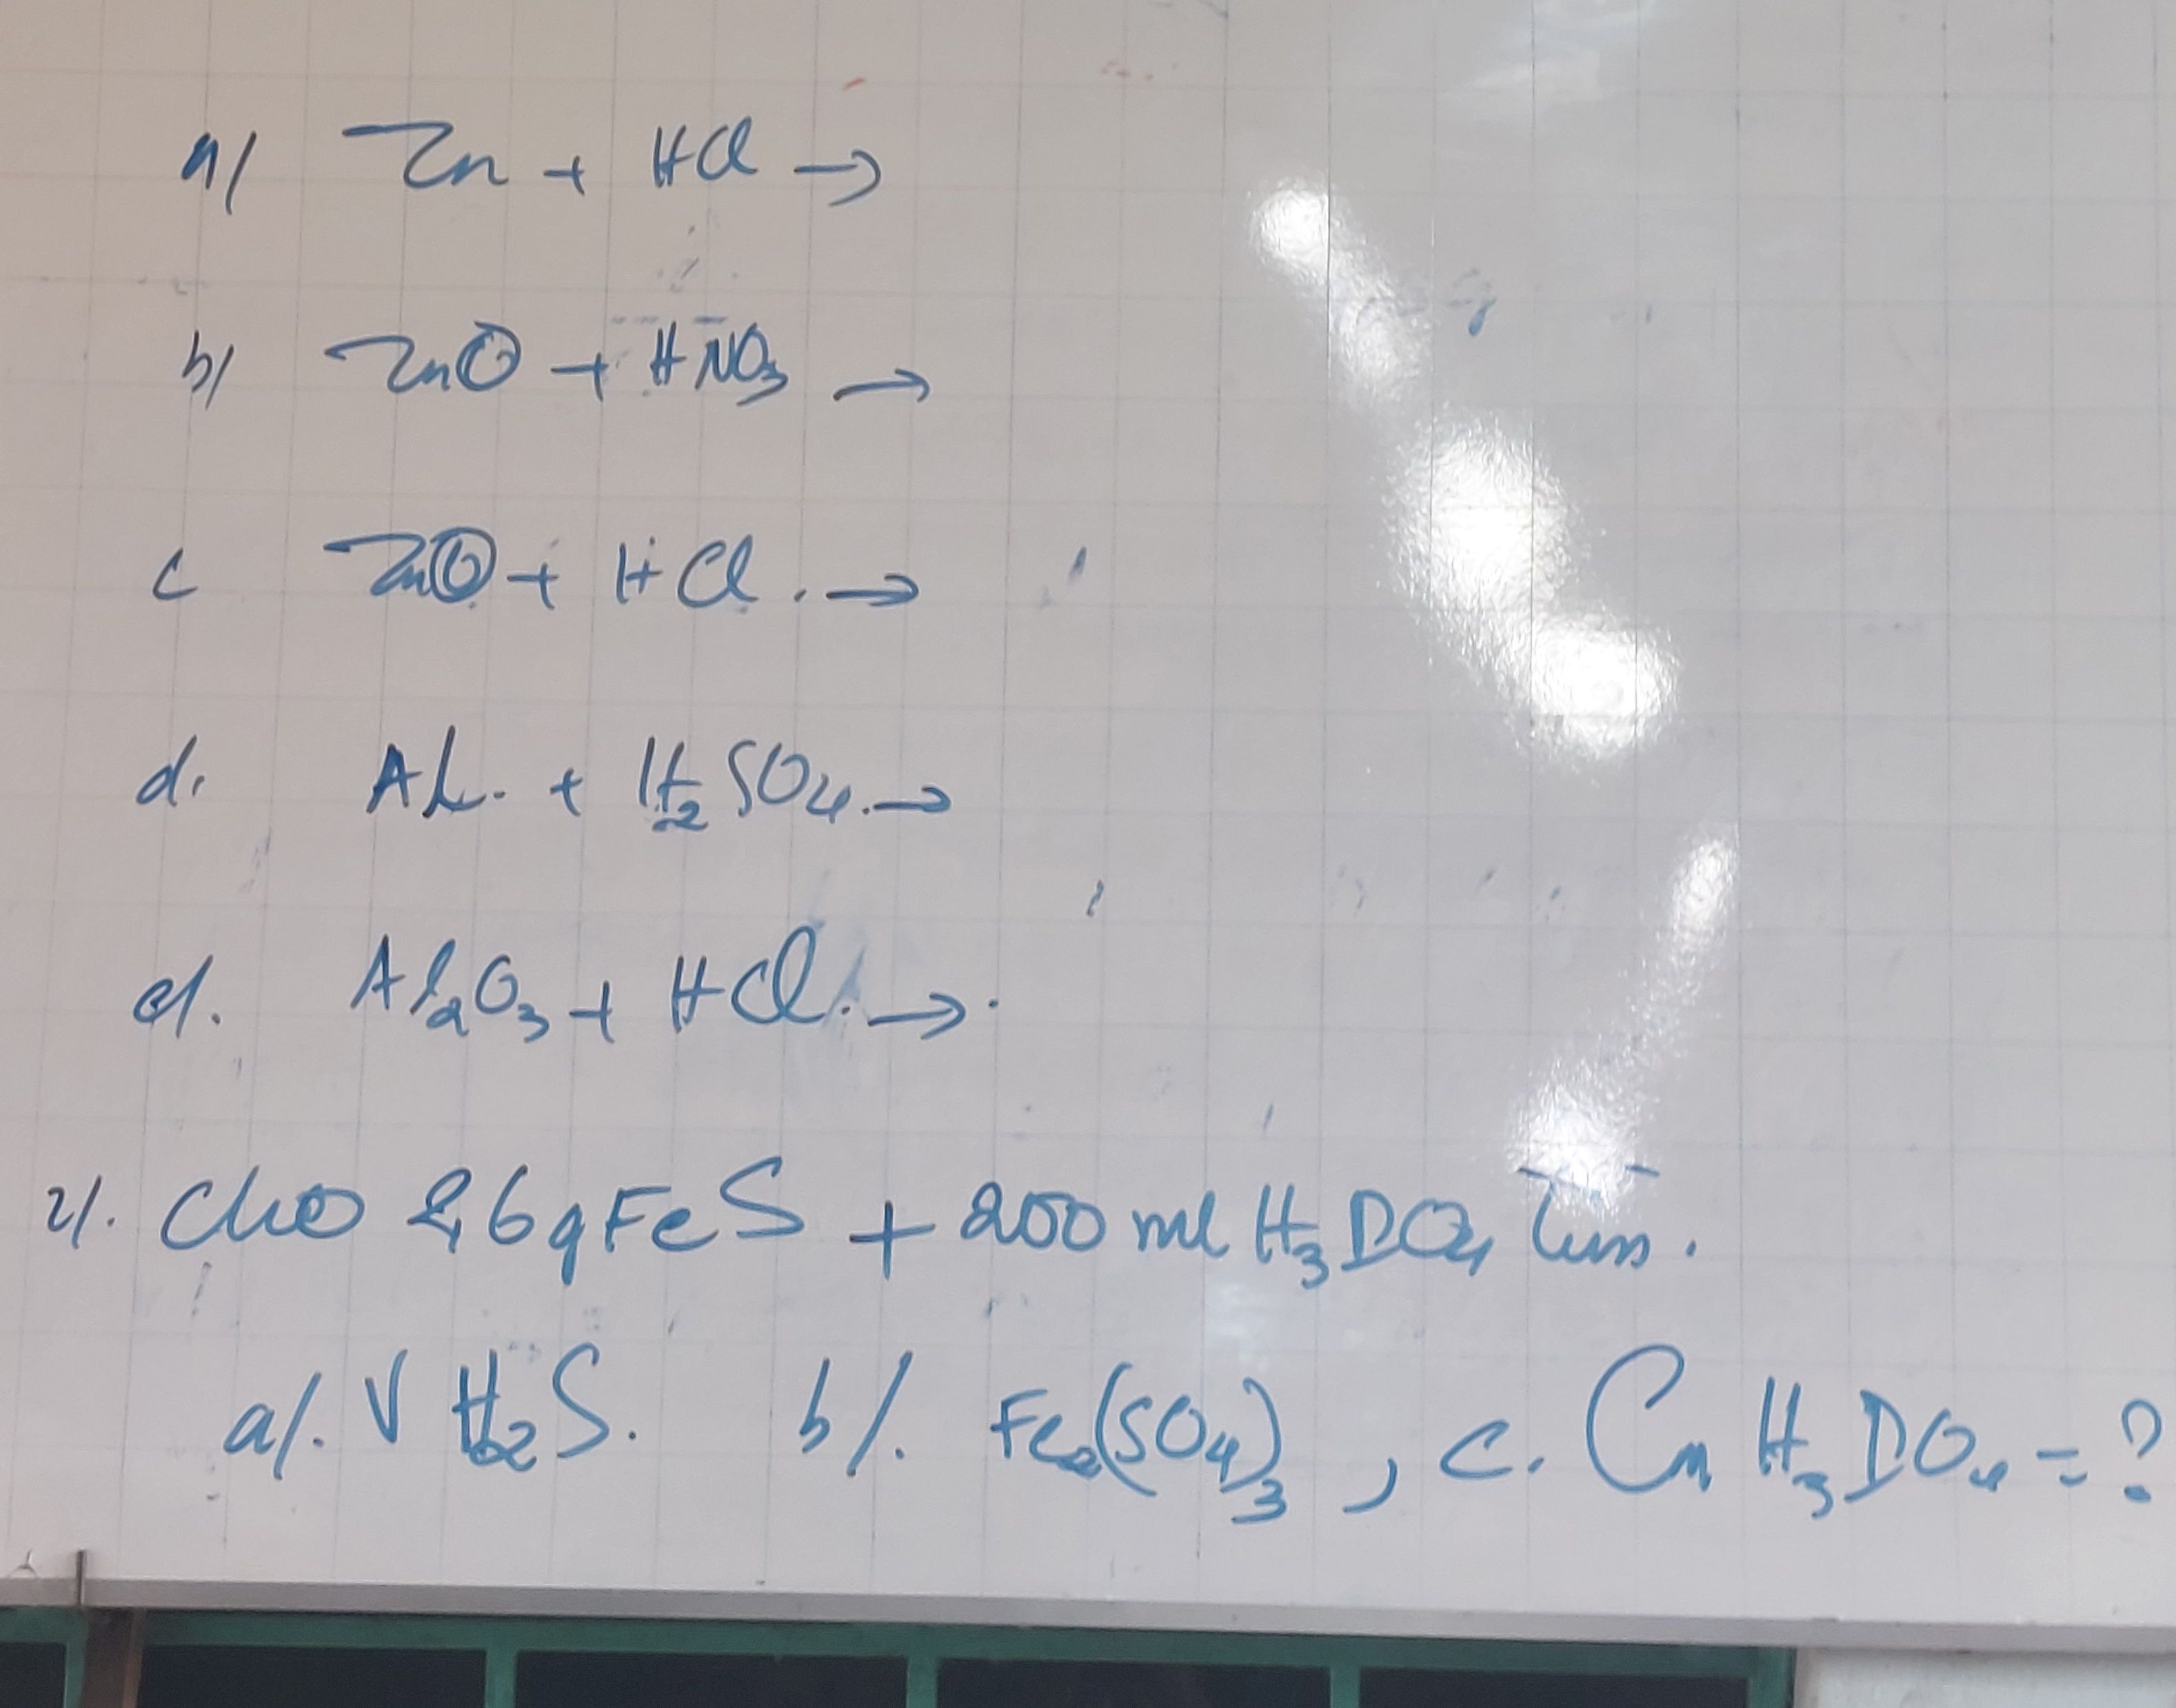 a/ Zn + HCl →
b/ ZnO + HNO₃ →
c ZnO + HCl . →
d. Al. + H₂SO₄. →
e/. Al₂O₃ + HCl. →.
2/. Cho 2,6g FeS + 200 ml H₃DO₄ .
a/. V H₂S. b/. Fe₂(SO₄)₃ , c. Cm H₃DO₄ = ?